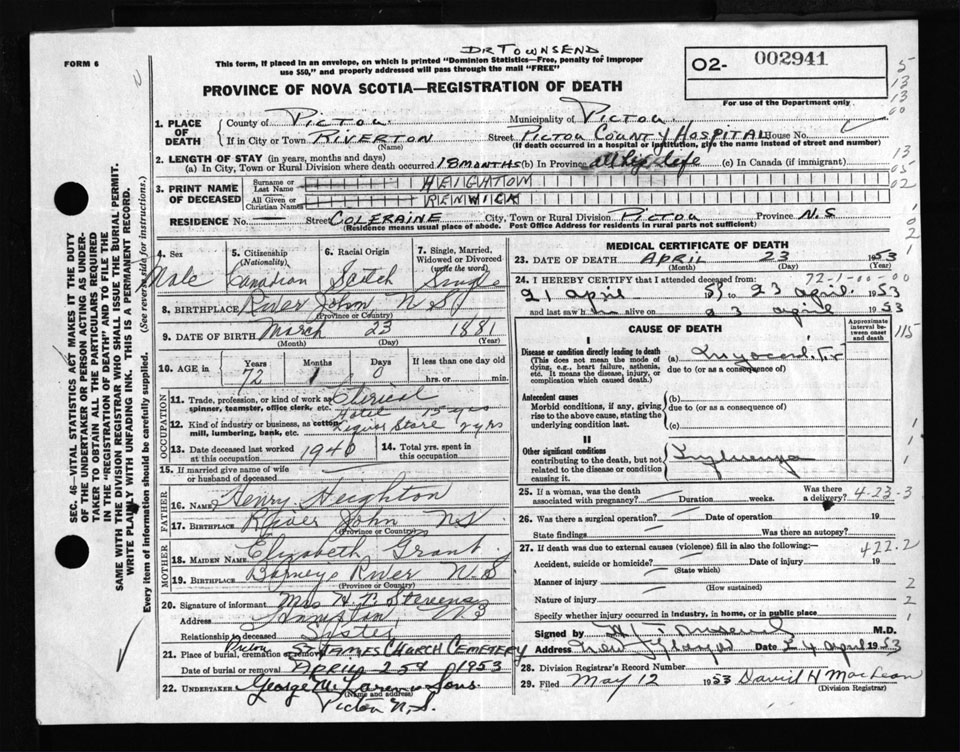 DR TOWNSEND
FORM 6
This form, if placed in an envelope, on which is printed "Dominion Statistics—Free, penalty for improper
use $50," and properly addressed will pass through the mail "FREE"
O2- 002941
For use of the Department only
PROVINCE OF NOVA SCOTIA—REGISTRATION OF DEATH
1. PLACE OF DEATH
County of Pictou Municipality of Pictou
If in City or Town RIVERTON Street PICTOU COUNTY HOSPITAL House No.
(Name) (If death occurred in a hospital or institution, give the name instead of street and number)
2. LENGTH OF STAY (in years, months and days)
(a) In City, Town or Rural Division where death occurred 18 MONTHS (b) In Province all his life (c) In Canada (if immigrant)
3. PRINT NAME OF DECEASED
Surname or Last Name HEIGHTON
All Given or Christian Names RENWICK
RESIDENCE No. — Street COLERAINE City, Town or Rural Division PICTOU Province N.S
(Residence means usual place of abode. Post Office Address for residents in rural parts not sufficient)
4. Sex Male
5. Citizenship (Nationality) Canadian
6. Racial Origin Scotch
7. Single, Married, Widowed or Divorced (write the word) Single
8. BIRTHPLACE River John N S
(Province or Country)
9. DATE OF BIRTH March 23 1881
(Month) (Day) (Year)
10. AGE in Years 72 Months 1 Days 0 If less than one day old hrs. or min.
OCCUPATION
11. Trade, profession, or kind of work as spinner, teamster, office clerk, etc. Clerical
Hotel 15 yrs
12. Kind of industry or business, as cotton mill, lumbering, bank, etc. Liquor Store yrs
13. Date deceased last worked at this occupation 1940
14. Total yrs. spent in this occupation
15. If married give name of wife or husband of deceased
FATHER
16. NAME Henry Heighton
17. BIRTHPLACE River John NS
(Province or Country)
MOTHER
18. MAIDEN NAME Elizabeth Grant
19. BIRTHPLACE Barneys River N.S
(Province or Country)
20. Signature of informant Mrs H. Stevens
Address Hampton,
Relationship to deceased Sister
21. Place of burial, cremation or removal Pictou ST JAMES CHURCH CEMETERY
Date of burial or removal APRIL 25th 1953
22. UNDERTAKER George M. & Sons
(Name and address)
Pictou N.S.
MEDICAL CERTIFICATE OF DEATH
23. DATE OF DEATH APRIL 23 1953
(Month) (Day) (Year)
24. I HEREBY CERTIFY that I attended deceased from: 72-1-00-00
21 april 53 to 23 april 1953
and last saw h im alive on 23 april 1953
CAUSE OF DEATH
Approximate interval between onset and death
I
Disease or condition directly leading to death
(This does not mean the mode of dying, e.g., heart failure, asthenia, etc. It means the disease, injury, or complication which caused death.)
(a) Myocarditis
due to (or as a consequence of)
Antecedent causes
Morbid conditions, if any, giving rise to the above cause, stating the underlying condition last.
(b)
due to (or as a consequence of)
(c)
II
Other significant conditions
contributing to the death, but not related to the disease or condition causing it.
Influenza
25. If a woman, was the death associated with pregnancy? Duration weeks. Was there a delivery? 4-23-3
26. Was there a surgical operation? Date of operation 19
State findings Was there an autopsy?
27. If death was due to external causes (violence) fill in also the following:— 422.2
Accident, suicide or homicide? Date of injury 19
(State which)
Manner of injury
(How sustained)
Nature of injury
Specify whether injury occurred in industry, in home, or in public place
Signed by M.D.
Address New Glasgow Date 24 april 1953
28. Division Registrar's Record Number
29. Filed May 12 1953 David H MacLean
(Division Registrar)
SEC. 46—VITAL STATISTICS ACT MAKES IT THE DUTY
OF THE UNDERTAKER OR PERSON ACTING AS UNDERTAKER TO OBTAIN ALL THE PARTICULARS REQUIRED
IN THE "REGISTRATION OF DEATH" AND TO FILE THE
SAME WITH THE DIVISION REGISTRAR WHO SHALL ISSUE THE BURIAL PERMIT.
WRITE PLAINLY WITH UNFADING INK. THIS IS A PERMANENT RECORD.
Every item of information should be carefully supplied. (See reverse side for instructions.)
5
13
13
00
13
05
02
115